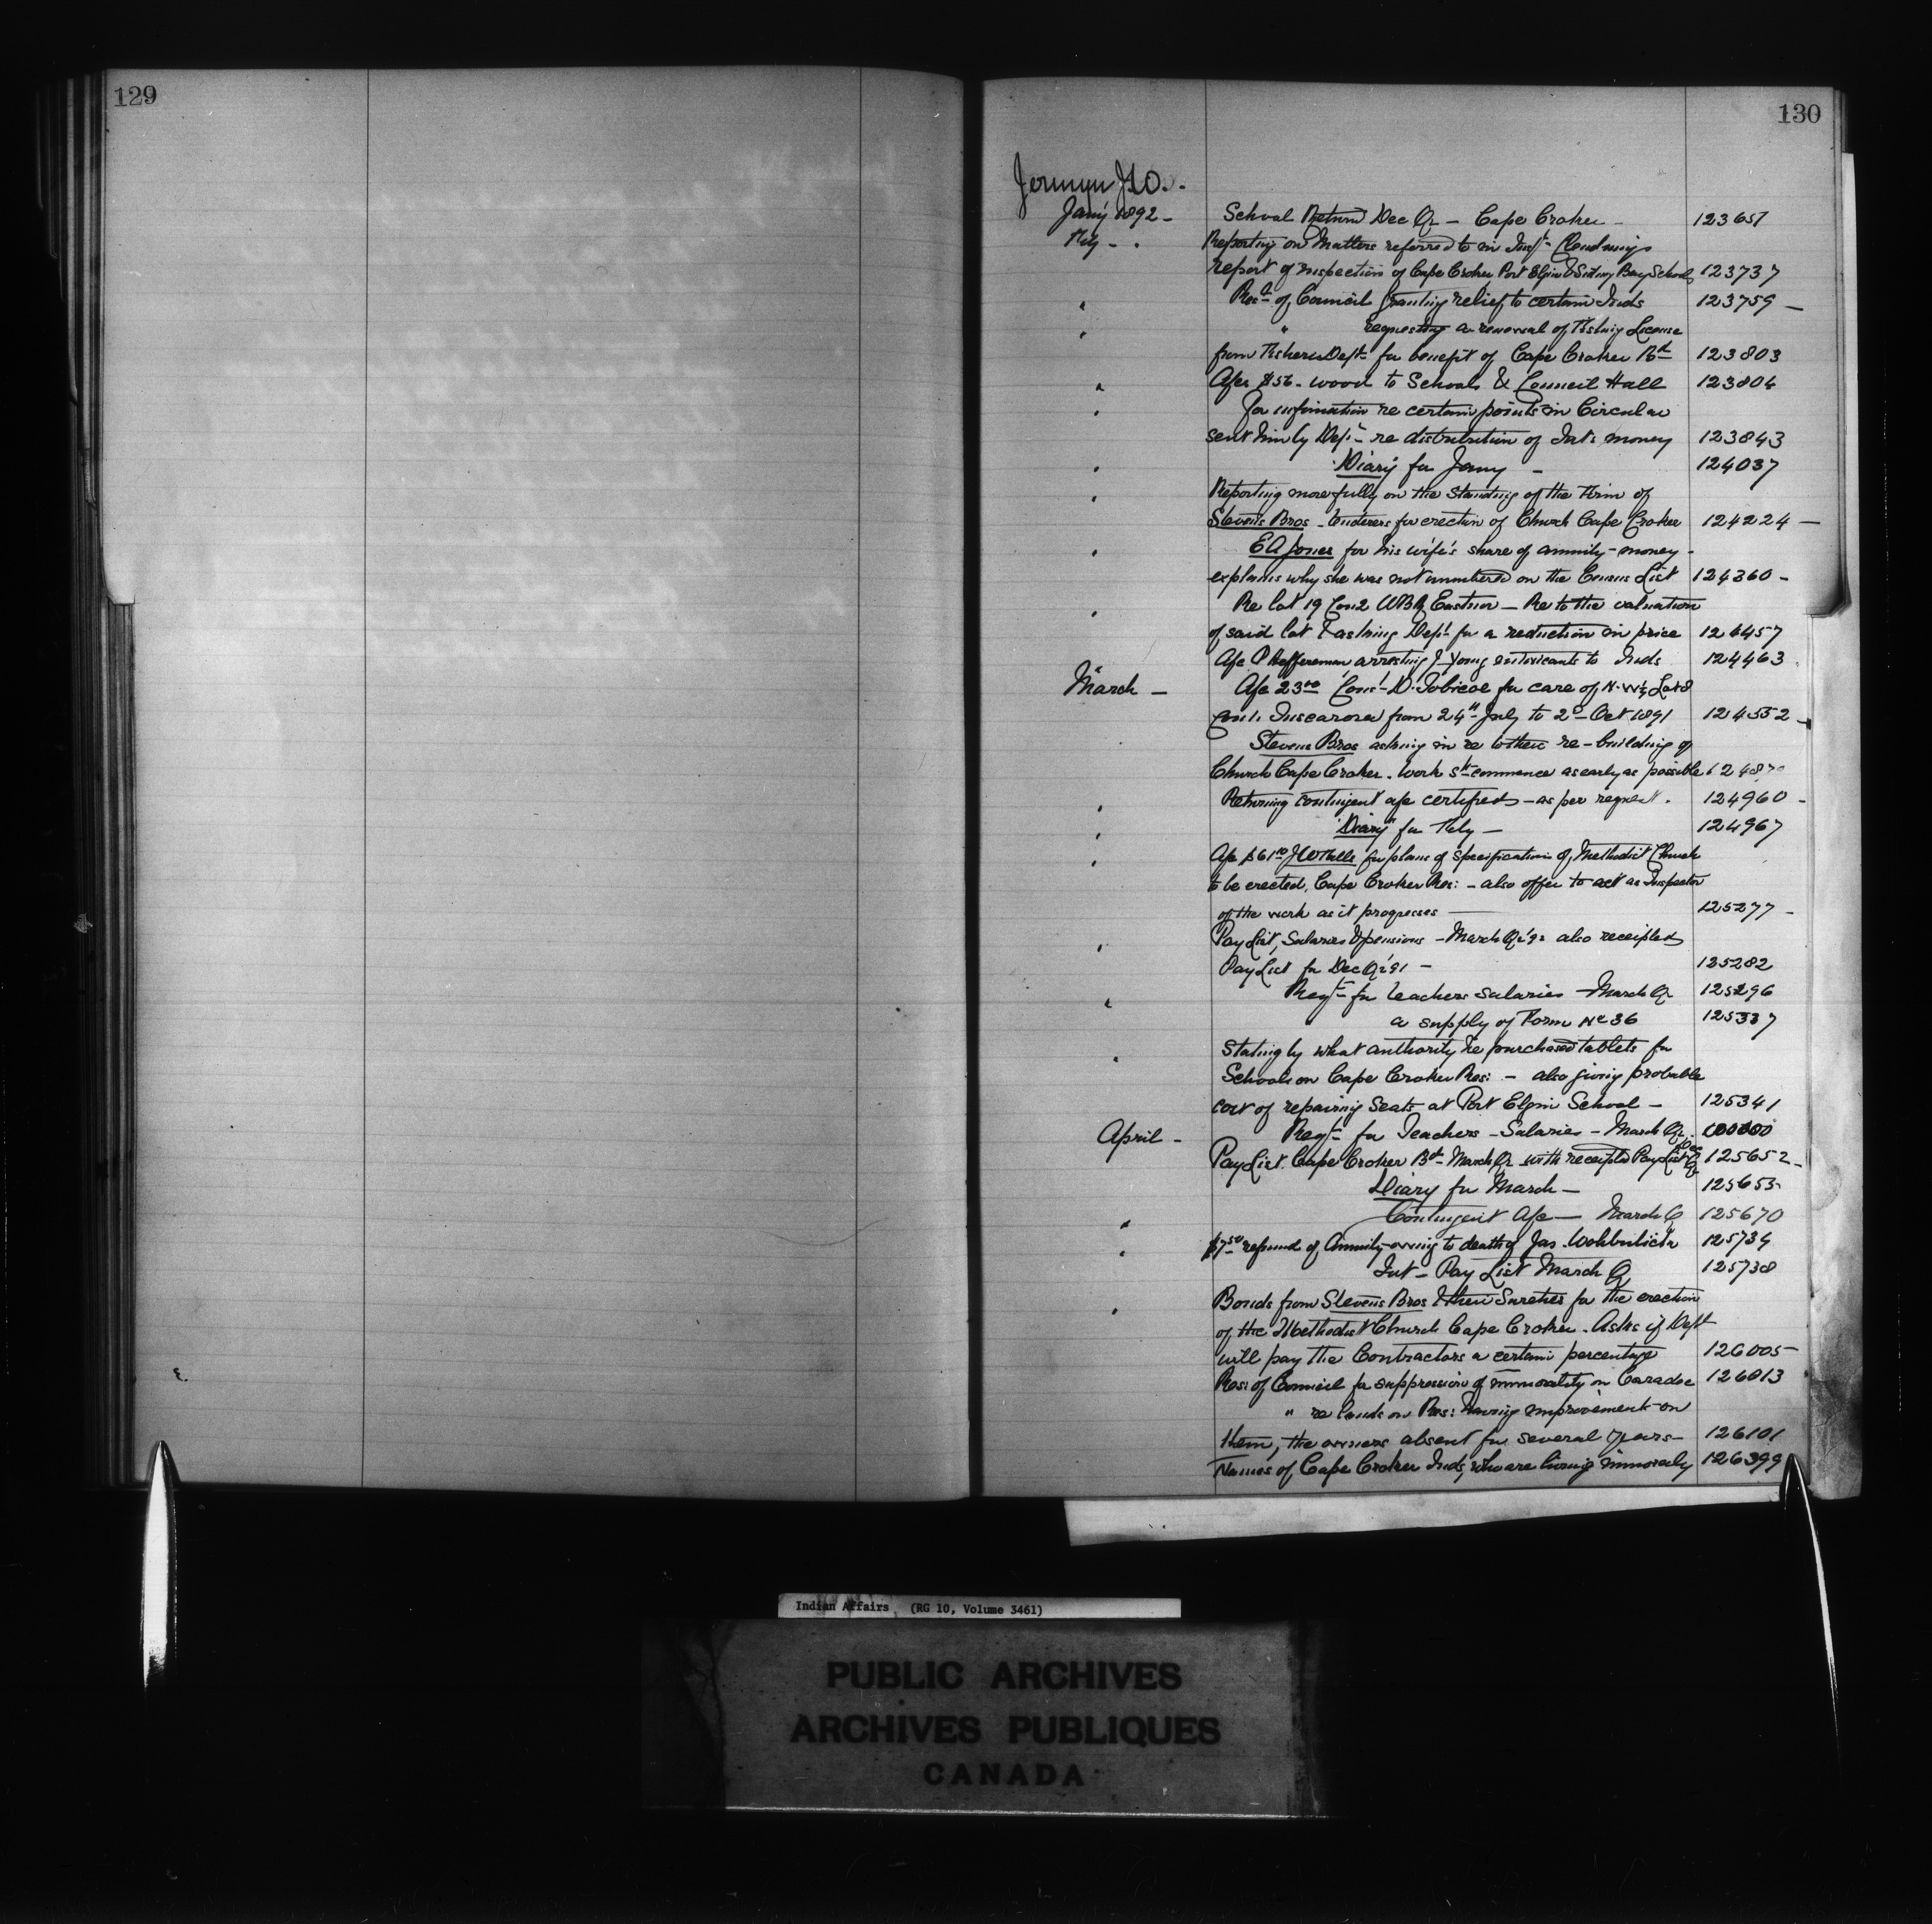 129
130
Jermyn J.W.
Jany 1892 -
School Return Dec Qr - Cape Croker - 123651
Feby -
Reporting on Matters referred to in Inspr
report of inspection of Cape Croker Port Elgin & Sidney Bay Schools 123737
" Resn of Council granting relief to certain Inds 123759 -
" " requesting a renewal of Fishing License
from Fisheries Dept for benefit of Cape Croker Bd 123803
" A/c $56. wood to Schools & Council Hall 123804
" For information re certain points in Circular
sent him by Dept re distribution of Int: money 123843
" Diary for Jany - 124037
" Reporting more fully on the standing of the Firm of
Stevens Bros - tenderers for erection of Church Cape Croker 124224 -
" E A Jones for his wife's share of annuity-money -
explains why she was not numbered on the Census List 124360 -
" Re lot 19 Con 2 WBR Eastnor - Re to the valuation
of said lot & asking Dept for a reduction in price 124457
A/c P Heffernan arresting J Young intoxicants to Inds 124463
March -
A/c 23 00 Const D. Tobicoe for care of N. W 1/2 Lot 8
Con 1. Tuscarora from 24th July to 2d Oct 1891 124552 -
Stevens Bros asking in re to the re-building of
Church Cape Croker. Work sd commence as early as possible
" Returning contingent a/c certified - as per request. 124960 -
" "Diary" for Feby - 124967
" A/c $61 00 for plans & specification of Methodist Church
to be erected, Cape Croker Res: - also offer to act as Inspector
of the work as it progresses 125277 -
" Pay List, Salaries & pensions - March Qr '92 also receipted
Pay List for Dec Qr '91 - 125282
" Reqn for teachers salaries - March Qr 125296
" a supply of Form No 36 125337
" Stating by what authority he purchased tablets for
Schools on Cape Croker Res: - also giving probable
cost of repairing Seats at Port Elgin School - 125341
April -
Reqn for Teachers - Salaries - March Qr. 000000
Pay List. Cape Croker Bd March Qr with receipted Pay List Dec Qr 125652 -
Diary for March - 125653
" Contingent A/c - March Q 125670
" $7 50 refund of Annuity owing to death of Jas. 125734
Int - Pay List March Q 125738
" Bonds from Stevens Bros & their Sureties for the erection
of the Methodist Church Cape Croker. Asks if Dept
will pay the Contractors a certain percentage 126005 -
Resn of Council for suppression of immorality on Caradoc 126013
" re lands on Res: having improvements on
them, the owners absent for several years - 126101
Names of Cape Croker Inds, who are living immorally 126399
Indian Affairs (RG 10, Volume 3461)
PUBLIC ARCHIVES
ARCHIVES PUBLIQUES
CANADA